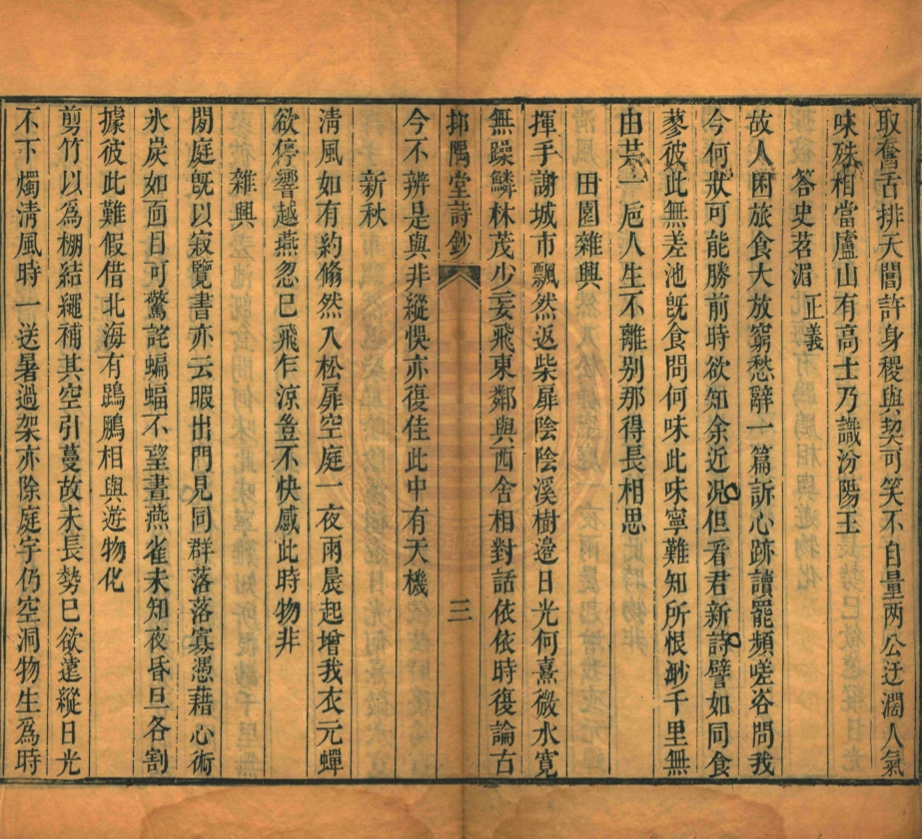 取奮舌排天閽許身稷與契可笑不自量兩公迂濶人氣
味殊相當廬山有高士乃識汾陽王
答史茗湄正義
故人困旅食大放窮愁辭一篇訴心跡讀罷頻嗟咨問我
今何狀可能勝前時欲知余近况但看君新詩譬如同食
蓼彼此無差池既食問何味此味寧難知所恨渺千里無
由共一巵人生不離别那得長相思
田園雜興
揮手謝城市飄然返柴扉陰陰溪樹邉日光何熹微水寛
無躁鱗林茂少妄飛東鄰與西舍相對話依依時復論古
抑隅堂詩鈔
三
今不辨是與非縱悞亦復佳此中有天機
新秋
清風如有約翛然入松扉空庭一夜雨晨起增我衣元蟬
欲停響越燕忽已飛乍涼豈不快感此時物非
雜興
閒庭既以寂覽書亦云暇出門見同群落落寡憑藉心術
氷炭如面目可驚詫蝙蝠不望晝燕雀未知夜昏旦各割
據彼此難假借北海有鵾鵬相與遊物化
剪竹以爲棚結繩補其空引蔓故未長勢已欲遠縱日光
不下燭清風時一送暑過架亦除庭宇仍空洞物生爲時